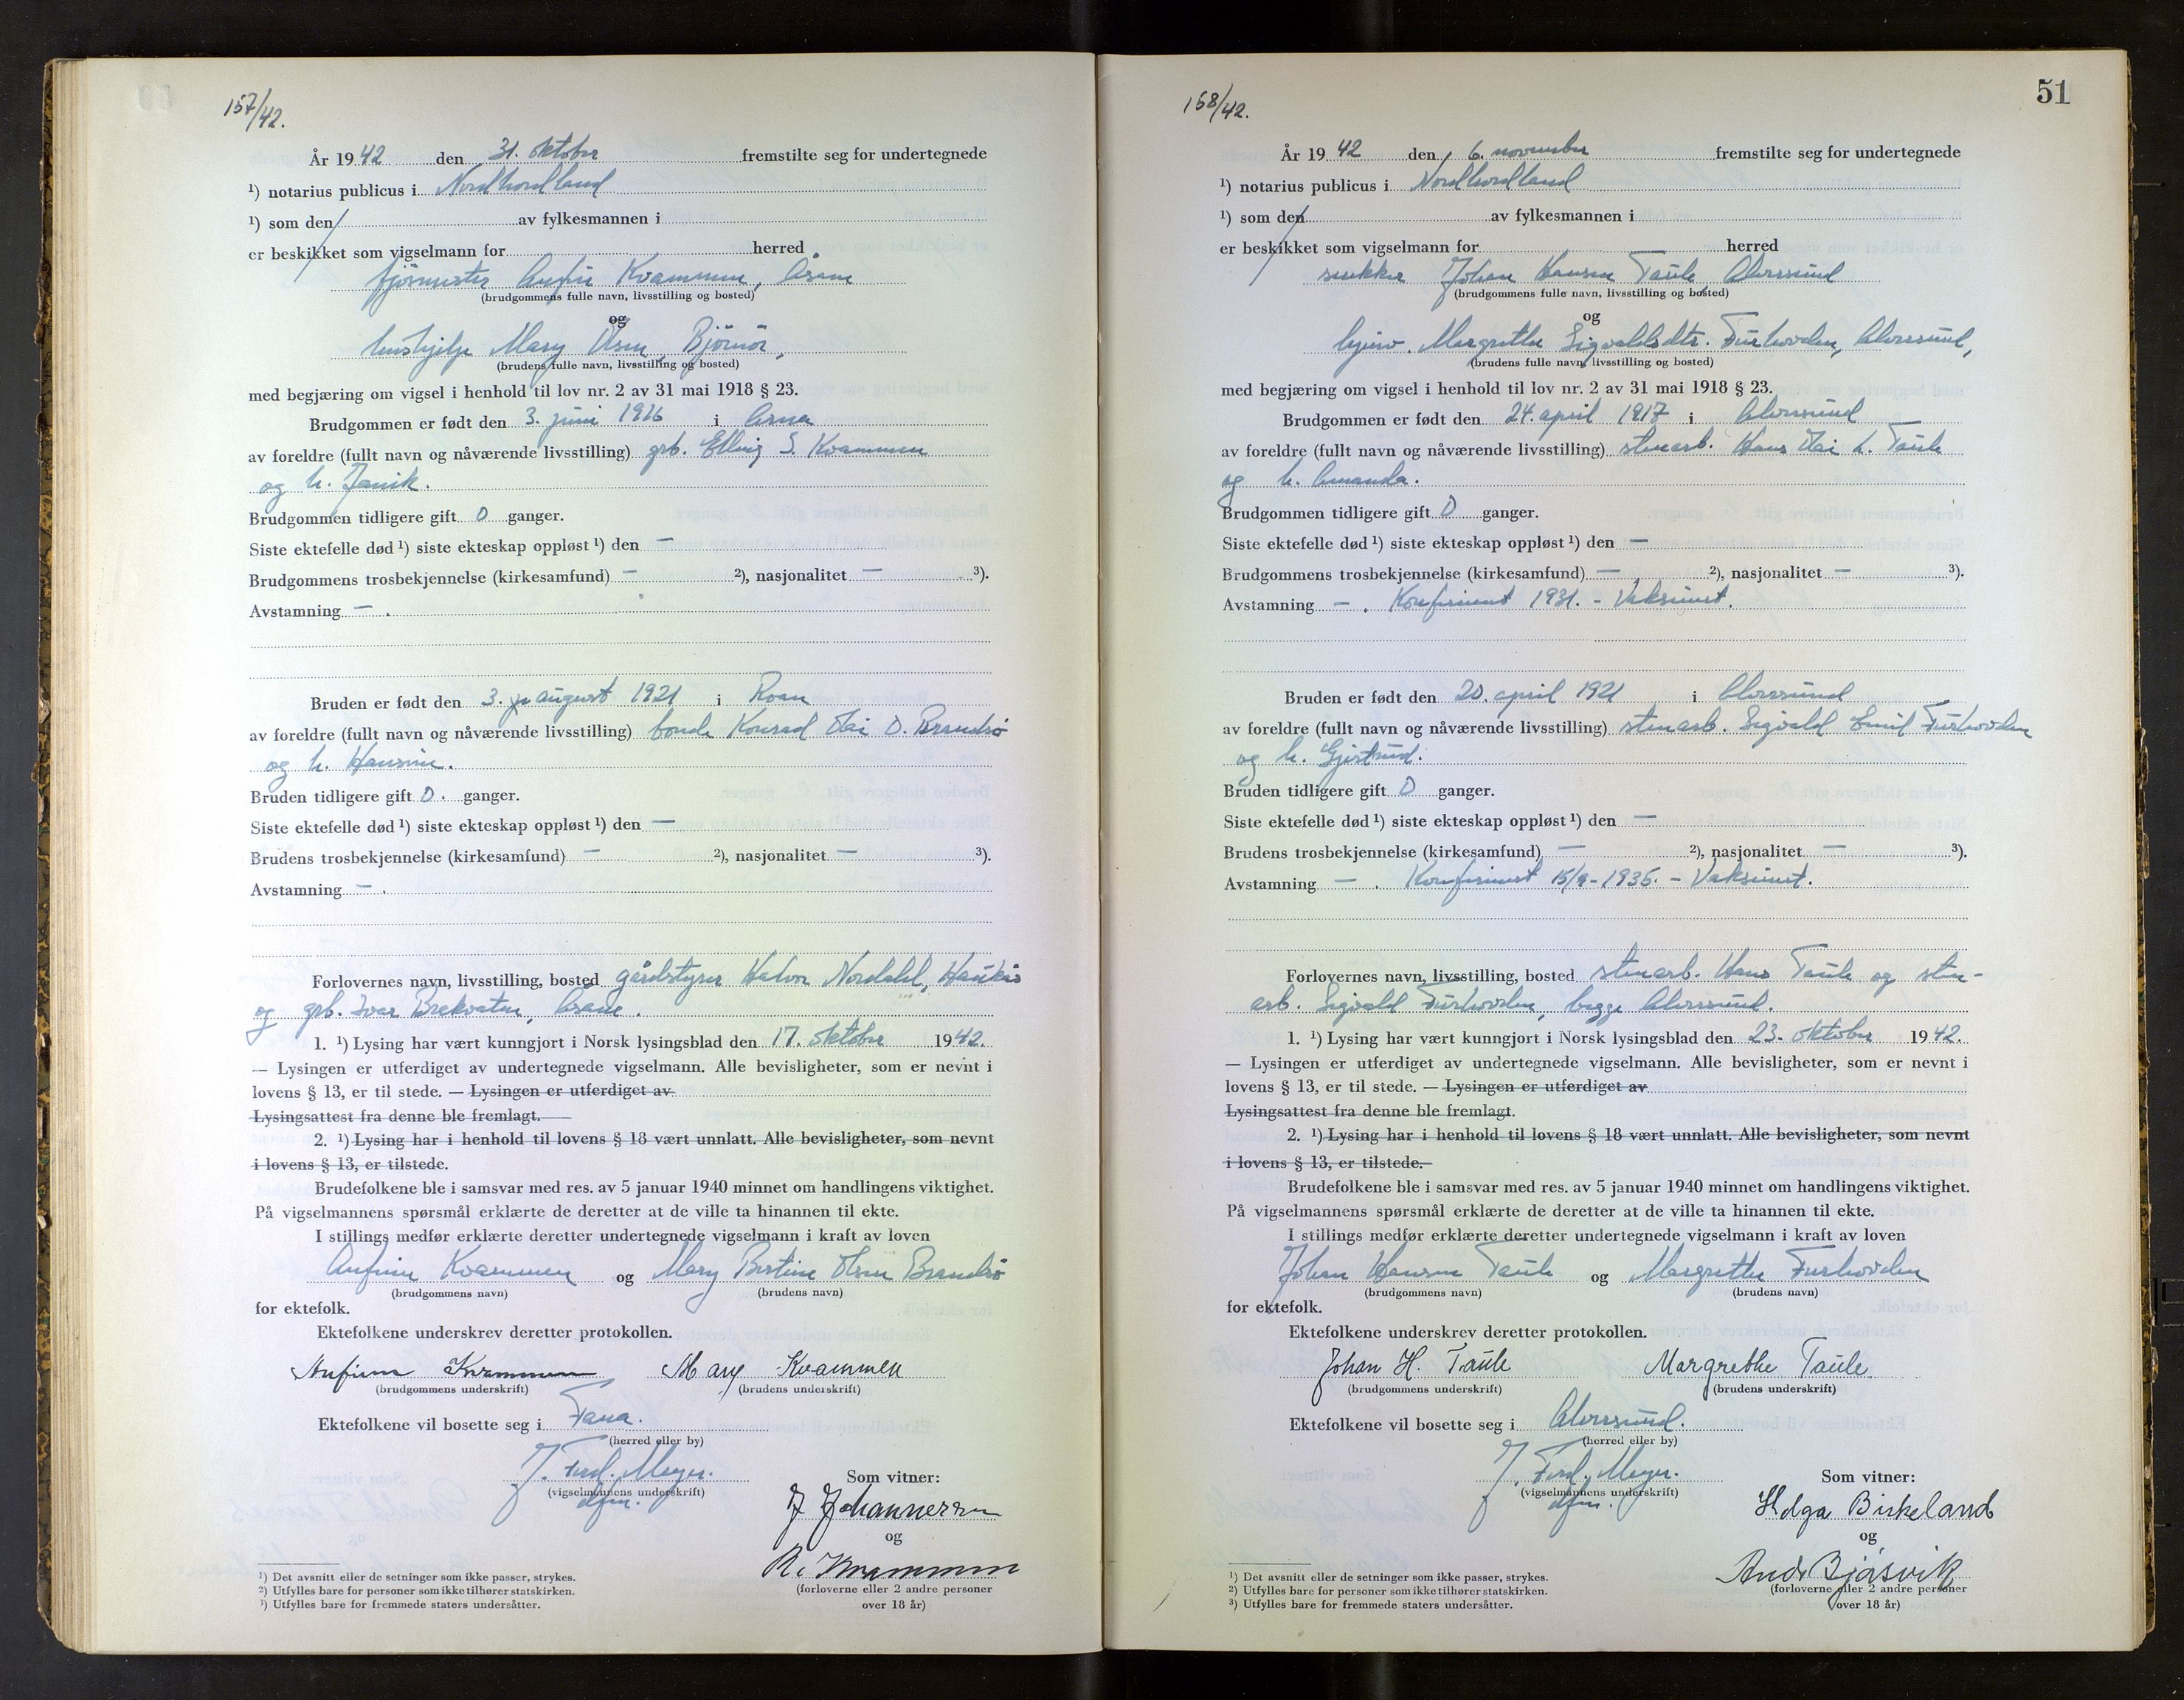 157/42.
År 19 42 den 31. oktober fremstilte seg for undertegnede
¹) notarius publicus i Nordhordland
¹) som den av fylkesmannen i
er beskikket som vigselmann for herred
Kvammen,
(brudgommens fulle navn, livsstilling og bosted)
og
hushjelp Mary Olsen, Björnör,
(brudens fulle navn, livsstilling og bosted)
med begjæring om vigsel i henhold til lov nr. 2 av 31 mai 1918 § 23.
Brudgommen er født den 3. juni 1916 i Arna
av foreldre (fullt navn og nåværende livsstilling) grb. Elling S. Kvammen
og h. Janik.
Brudgommen tidligere gift 0 ganger.
Siste ektefelle død ¹) siste ekteskap oppløst ¹) den —
Brudgommens trosbekjennelse (kirkesamfund) — ²), nasjonalitet — ³).
Avstamning — .
Bruden er født den 3. august 1921 i Roan
av foreldre (fullt navn og nåværende livsstilling) bonde Konrad Olai O. Brandsö
og h. Hansine.
Bruden tidligere gift 0. ganger.
Siste ektefelle død ¹) siste ekteskap oppløst ¹) den —
Brudens trosbekjennelse (kirkesamfund) — ²), nasjonalitet — ³).
Avstamning — .
Forlovernes navn, livsstilling, bosted gårdstyrer Halvor Nordahl, Haukås
og grb. Ivar Brekvatne,
1. ¹) Lysing har vært kunngjort i Norsk lysingsblad den 17. oktober 1942.
— Lysingen er utferdiget av undertegnede vigselmann. Alle bevisligheter, som er nevnt i
lovens § 13, er til stede. — Lysingen er utferdiget av
Lysingsattest fra denne ble fremlagt.
2. ¹) Lysing har i henhold til lovens § 18 vært unnlatt. Alle bevisligheter, som nevnt
i lovens § 13, er tilstede.
Brudefolkene ble i samsvar med res. av 5 januar 1940 minnet om handlingens viktighet.
På vigselmannens spørsmål erklærte de deretter at de ville ta hinannen til ekte.
I stillings medfør erklærte deretter undertegnede vigselmann i kraft av loven
Anfinn Kvammen og Mary Bertine Olsen Brandsö
(brudgommens navn) (brudens navn)
for ektefolk.
Ektefolkene underskrev deretter protokollen.
Anfinn Kvammen Mary Kvammen
(brudgommens underskrift) (brudens underskrift)
Ektefolkene vil bosette seg i Fana.
(herred eller by)
J. Ferd. Meyer.
(vigselmannens underskrift)
dfm.
Som vitner:
J Johannessen
og
R. Kvammen
(forloverne eller 2 andre personer
over 18 år)
¹) Det avsnitt eller de setninger som ikke passer, strykes.
²) Utfylles bare for personer som ikke tilhører statskirken.
³) Utfylles bare for fremmede staters undersåtter.
51
158/42.
År 19 42 den 6. november fremstilte seg for undertegnede
¹) notarius publicus i Nordhordland
¹) som den av fylkesmannen i
er beskikket som vigselmann for herred
snekker Johan Hansen Taule, Alverssund
(brudgommens fulle navn, livsstilling og bosted)
og
hjemv. Margrethe Sigvaldsdtr. Furhovden, Alverssund,
(brudens fulle navn, livsstilling og bosted)
med begjæring om vigsel i henhold til lov nr. 2 av 31 mai 1918 § 23.
Brudgommen er født den 24. april 1917 i Alverssund
av foreldre (fullt navn og nåværende livsstilling) stenarb. Hans Olai h. Taule
og h. Amanda.
Brudgommen tidligere gift 0 ganger.
Siste ektefelle død ¹) siste ekteskap oppløst ¹) den —
Brudgommens trosbekjennelse (kirkesamfund) — ²), nasjonalitet — ³).
Avstamning — . Konfirmert 1931. - Vaksinert.
Bruden er født den 20. april 1921 i Alverssund
av foreldre (fullt navn og nåværende livsstilling) stenarb. Sigvald Emil Furhovden
og h. Gjertrud.
Bruden tidligere gift 0 ganger.
Siste ektefelle død ¹) siste ekteskap oppløst ¹) den —
Brudens trosbekjennelse (kirkesamfund) — ²), nasjonalitet — ³).
Avstamning — . Konfirmert 15/9-1935. - Vaksinert.
Forlovernes navn, livsstilling, bosted stenarb. Hans Taule og sten-
arb. Sigvald Furhovden, begge Alverssund.
1. ¹) Lysing har vært kunngjort i Norsk lysingsblad den 23. oktober 1942.
— Lysingen er utferdiget av undertegnede vigselmann. Alle bevisligheter, som er nevnt i
lovens § 13, er til stede. — Lysingen er utferdiget av
Lysingsattest fra denne ble fremlagt.
2. ¹) Lysing har i henhold til lovens § 18 vært unnlatt. Alle bevisligheter, som nevnt
i lovens § 13, er tilstede.
Brudefolkene ble i samsvar med res. av 5 januar 1940 minnet om handlingens viktighet.
På vigselmannens spørsmål erklærte de deretter at de ville ta hinannen til ekte.
I stillings medfør erklærte deretter undertegnede vigselmann i kraft av loven
Johan Hansen Taule og Margrethe Furhovden
(brudgommens navn) (brudens navn)
for ektefolk.
Ektefolkene underskrev deretter protokollen.
Johan H. Taule Margrethe Taule.
(brudgommens underskrift) (brudens underskrift)
Ektefolkene vil bosette seg i Alverssund.
(herred eller by)
J. Ferd. Meyer.
(vigselmannens underskrift)
dfm.
Som vitner:
Helga Birkeland
og
And. Bjørsvik
(forloverne eller 2 andre personer
over 18 år)
¹) Det avsnitt eller de setninger som ikke passer, strykes.
²) Utfylles bare for personer som ikke tilhører statskirken.
³) Utfylles bare for fremmede staters undersåtter.